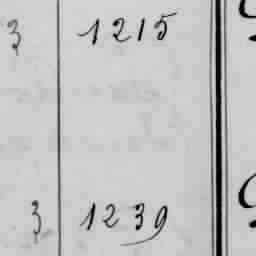 3 1215
3 1239